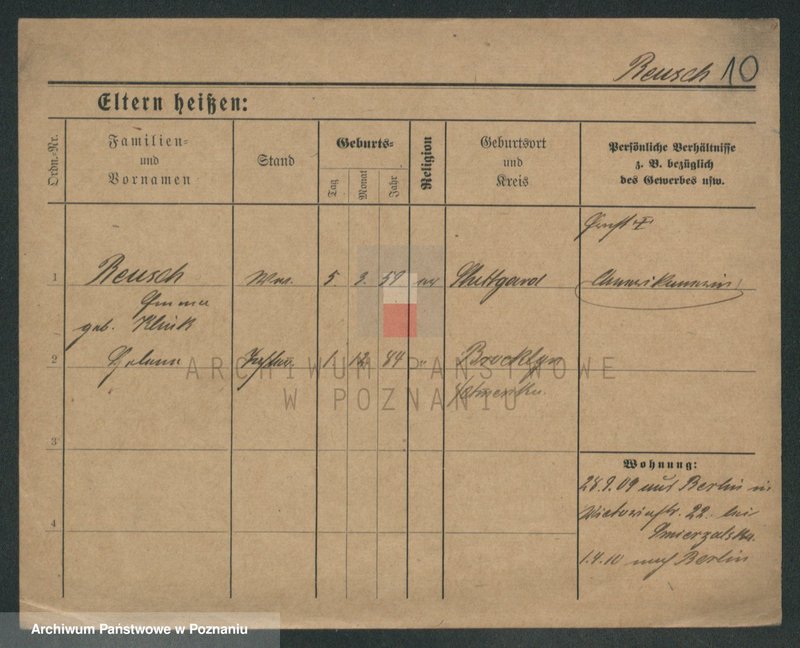 Reusch 10
Eltern heißen:
Ordn.-Nr.
Familien-
und
Vornamen
Stand
Geburts-
Tag
Monat
Jahr
Religion
Geburtsort
und
Kreis
Persönliche Verhältnisse
z. B. bezüglich
des Gewerbes usw.
Ernst
1 Reusch Ww. 5 3. 59 Stuttgard Amerikanerin
Emma
geb. Klink
2 Helene Tochter 1. 12. 84 Brocklyn
Amerika.
3
4
Wohnung:
28.9.09 aus Berlin in
Victoriastr. 22 bei
1.4.10 nach Berlin
ARCHIWUM PAŃSTWOWE
W POZNANIU
Archiwum Państwowe w Poznaniu